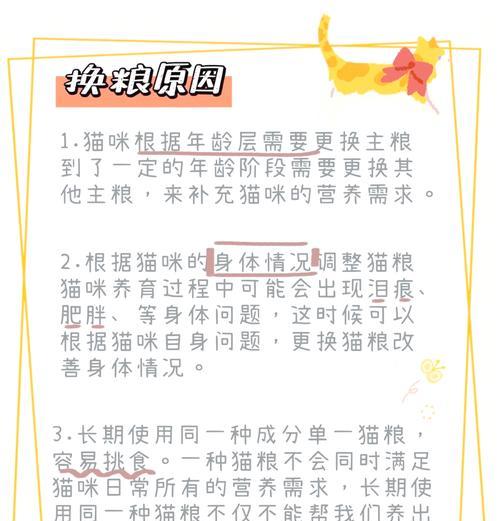 换粮原因
1.猫咪根据年龄层需要更换主粮
到了一定的年龄阶段需要更换其
他主粮，来补充猫咪的营养需求。
2.根据猫咪的身体情况调整猫粮
猫咪养育过程中可能会出现泪痕、
肥胖、等身体问题，这时候可以
根据猫咪自身问题，更换猫粮改
善身体情况。
3.长期使用同一种成分单一猫粮，
容易挑食。一种猫粮不会同时满足
猫咪日常所有的营养需求，长期使
用同一种猫粮不仅不能帮我们养出